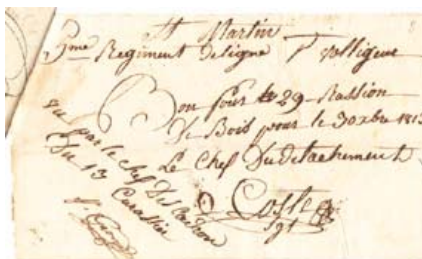 St Martin
5me Regiment de ligne
Bon pour 29 Rassion
De Bois pour le 30 xbre 1813
Le Chef Du detachement
Coste
Sgt
vu par le chef D'Escadron
Du 13 Cuirassier